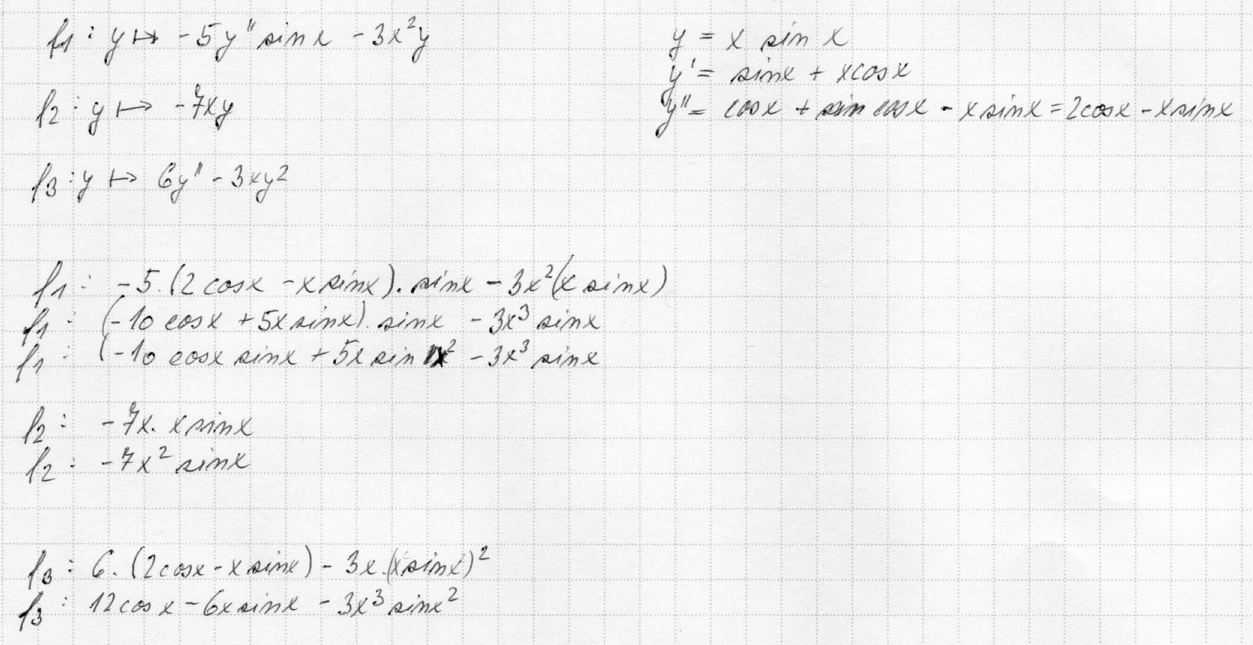 f1 : y ↦ -5y'' sin x - 3x²y
y = x sin x
y' = sinx + xcosx
f2 : y ↦ -7xy
y'' = cosx + cosx - x sinx = 2cosx - x sinx
f3 : y ↦ 6y'' - 3xy²
f1 : -5.(2 cosx - x sinx). sinx - 3x²(x sinx)
f1 : (-10 cosx + 5x sinx). sinx - 3x³ sinx
f1 : (-10 cosx sinx + 5x sin x² - 3x³ sinx
f2 : -7x. x sinx
f2 : -7x² sinx
f3 : 6. (2cosx - x sinx) - 3x.(x sinx)²
f3 : 12 cosx - 6x sinx - 3x³ sinx²